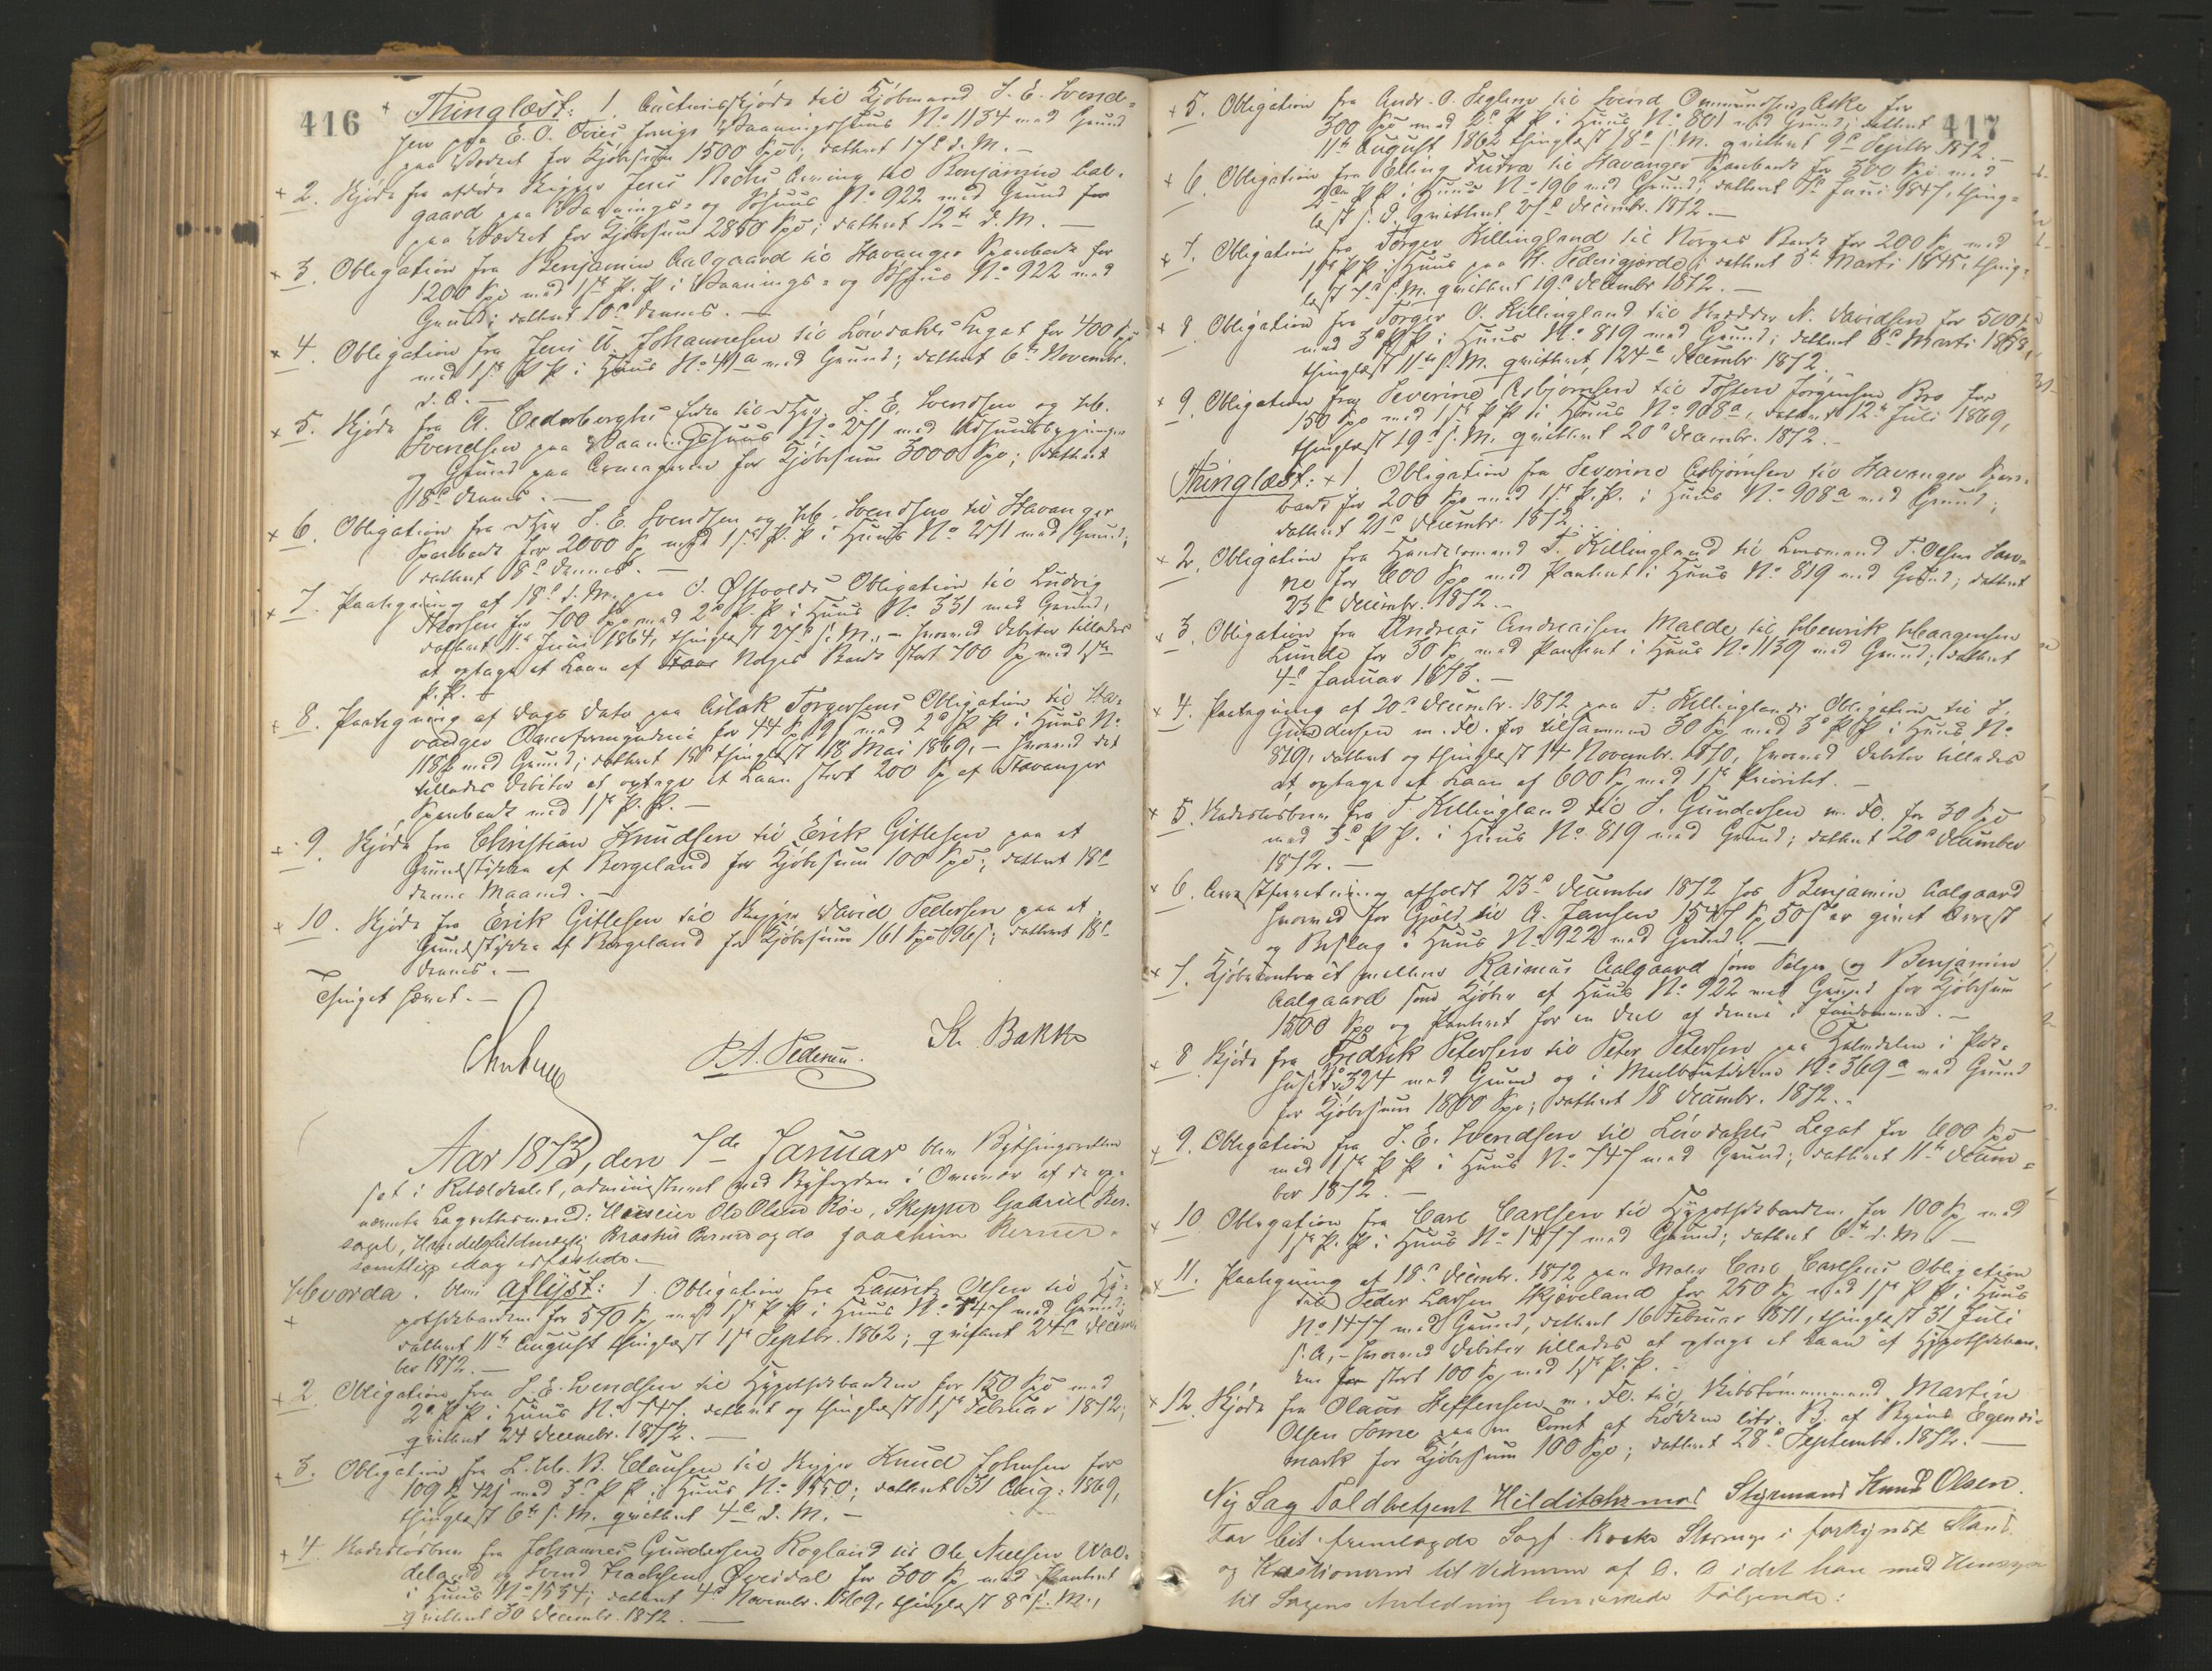 416
Thinglæst: 1. Auctionsskjøde til Kjøbmand S. E. Svend=
sen paa E. O. Tveis forrige Vaaningshuus No 1134 med Grund
paa Verket for Kjøbesum 1500 Spd; datteret 17de d. M. —
2. Skjøde fra afdøde Skipper Jens Arving til Benjamin Aal=
gaard paa Vaanings= og Søhuus No 922 med Grund
paa Verket for Kjøbesum 2850 Spd; datteret 12te d. M. —
3. Obligation fra Benjamin Aalgaard til Stavanger Sparebank for
1200 Spd med 1ste P. Pt i Vaanings= og Søhuus No 922 med
Grund; datteret 20de dennes. —
4. Obligation fra Jens W. Johannesen til Løvdahls Legat for 400 Spd
med 1ste P Pt i Huus No 41a med Grund; datteret 6te Novembr.
d. A. —
5. Skjøde fra A. Cederberghs Enke til S. E. Svendsen og Hb.
Svendsen paa Vaaningshuus No 271 med
og Grund paa for Kjøbesum 3000 Spd; datteret
18de dennes. —
6. Obligation fra S. E. Svendsen og Hb. Svendsen til Stavanger
Sparebank for 2000 Sp med 1ste P. Pt i Huus No 271 med Grund;
datteret 18de dennes. —
7. Paategning af 18de d. M. paa J. Østvolds Obligation til Ludvig
for 700 Spd med 2den P. Pt i Huus No 331 med Grund,
datteret 11te Juni 1864, thinglæst 27de s. M., — hvorved Debitor tillades
at optage et Laan af Norges Bank stort 700 Sp med 1ste
P. Pt. —
8. Paategning af Dags Dato paa Aslak Torgersens Obligation til Sta=
vanger for 44 Sp 19 s med 2den P Pt i Huus No
118b med Grund; datteret thinglæst 18 Mai 1869, — hvorved det
tillades Debitor at optage et Laan stort 200 Sp af Stavanger
Sparebank med 1ste P. Pt. —
9. Skjøde fra Christian Knudsen til Erik Gitlesen paa et
Grundstykke af Bergeland for Kjøbesum 100 Spd; datteret 18de
denne Maaned. —
10. Skjøde fra Erik Gitlesen til Skipper David Pedersen paa et
Grundstykke af Bergeland for Kjøbesum 161 Spd 96 s; datteret 18de
dennes. —
Thinget hævet. —
P. A. Pedersen. K. Bakke
Aar 1873, den 7de Januar blev Bythingsretten
sat i Retslokalet, administreret ved Byfogden i Overvær af de op=
nævnte Lagrettesmænd: Huuseier Ole Olsen Røe, Skipper Gabriel
Handelsfuldmægtig Berner og do Joachim Berner.
samtlige
Hvorda blev aflyst: 1. Obligation fra Lauritz Olsen til Hy=
pothekbanken for 570 Sp med 1ste P Pt i Huus No 747 med Grund;
datteret 11te August thinglæst 1ste Septbr. 1862; qviteret 24de Decem
ber 1872. —
2. Obligation fra S. E. Svendsen til Hypothekbanken for 150 Spd med
2den P Pt i Huus No 747, datteret og thinglæst 1ste Februar 1872;
qvitteret 24 Decembr. 1872. —
3. Obligation fra L. W. B. Clausen til Skipper Knud Johnsen for
109 Sp 42 s med 3die P Pt i Huus No 1550; datteret 31 Aug. 1869,
thinglæst 6te s. M. qvitteret 4de d. M. —
4. Skadesløsbrev fra Johannes Gundersen Rogland til Ole Nielsen Wol=
deland og Svend Øvesdal for 300 Sp med Panteret
i Huus No 1534; datteret 4de Novembr. 1869, thinglæst 8de s. M.,
qvitteret 30 Decembr. 1872. —
417
5. Obligation fra Andr. O. til Svend Ommundsen Aske for
300 Spd med 2den P Pt i Huus No 801 med Grund; datteret
11te August 1862 thinglæst 18de s. M. qvitteret 9de Septbr. 1872. —
6. Obligation fra Elling Tudra til Stavanger Sparebank for 300 Spd med
2den P Pt i Huus No 196 med Grund; datteret Juni 1847, thing=
læst s. D. qvitteret 27de Decembr. 1872. —
7. Obligation fra Torger Killingland til Norges Bank for 200 Sp med
1ste P Pt i Huus paa St. Pedersgjerde; datteret 5te Marts 1845, thing=
læst 7de s. M. qvitteret 19de Decembr 1872. —
8. Obligation fra Torger O. Killingland til Skrædder N. Davidsen for 500
med 3die P Pt i Huus No 819 med Grund; datteret 8de Marts 1858,
thinglæst 11te s. M. qvitteret 24de Decembr 1872.
9. Obligation fra Severine Asbjørnsen til Tosten Jørgensen Bro for
150 Spd med 1ste P Pt i Huus No 908a, datteret 12te Juli 1869,
thinglæst 19de s. M. qvitteret 20de Decembr. 1872. —
Thinglæst: 1. Obligation fra Severine Asbjørnsen til Stavanger Spare=
bank for 200 Spd med 1ste P. Pt. i Huus No 908a med Grund;
datteret 21de Decembr. 1872.
2. Obligation fra Handelsmand T. Killingland til Lensmand T. Olsen
for 600 Spd med Panteret i Huus No 819 med Grund; datteret
23de Decembr. 1872. —
3. Obligation fra Andreas Andreassen Malde til Henrik Haagensen
Lunde for 30 Sp med Panteret i Huus No 1139 med Grund; datteret
4de Januar 1873. —
4. Paategning af 20de Decembr. 1872 paa T. Killinglands Obligation til S.
Gundersen m. Fl. for tilsammen 30 Sp med 3die P Pt i Huus No
819, datteret og thinglæst 14 Novembr. 1870, hvorved Debitor tillades
at optage et Laan af 600 Sp med 1ste Prioritet. —
5. Skadesløsbrev fra T. Killingland til S. Gundersen m. Fl. for 30 Spd
med 3die P Pt. i Huus No 819 med Grund; datteret 20de December
1872. —
6. Arrestforretning afholdt 23de December 1872 hos Benjamin Aalgaard
hvorved for Gjæld til A. Jansen 1547 Sp 50 s er gjort Arrest
og Beslag i Huus No 922 med Grund. —
7. Kjøbekontrakt mellem Rasmus Aalgaard som Sælger og Benjamin
Aalgaard som Kjøber af Huus No 922 med Grund for Kjøbesum
1500 Spd og Panteret for en Deel af denne i Eiendommen. —
8. Skjøde fra Fredrik Petersen til Peter Petersen paa Halvdelen i Pak=
huset No 324 med Grund og i No 369a med Grund
for Kjøbesum 1800 Spd; datteret 18 Decembr. 1872. —
9. Obligation fra S. E. Svendsen til Løvdahls Legat for 600 Spd
med 1ste P Pt i Huus No 747 med Grund; datteret 11te Decem=
ber 1872. —
10. Obligation fra Carl Carlsen til Hypothekbanken for 100 Sp med
1ste P. Pt i Huus No 1477 med Grund; datteret 6te d. M. —
11. Paategning af 18de Decembr. 1872 paa Maler Carl Carlsens Obligation
til Peder Larsen Skjæveland for 250 Sp med 1ste P Pt i Huus
No 1477 med Grund, datteret 16 Februar 1871, thinglæst 31 Juli
s. A., — hvorved Debitor tillades at optage et Laan af Hypothekban=
ken stort 100 Sp med 1ste P. Pt.
12. Skjøde fra Olaus Steffensen m. Fl. til Skibstømmermand Martin
Olsen Torne paa en Tomt af Løkken litr. B. af Byens Egen=
mark for Kjøbesum 100 Spd; datteret 28de Septembr. 1872. —
Ny Sag Toldbetjent Hilditch mod Styrmand Knud Olsen.
For Cit. fremlagde Sagf. Stævning i forkyndt Stand
og til Vidnerne af D. D idet han med Hensyn
til Sagens Anledning bemærkede Følgende: